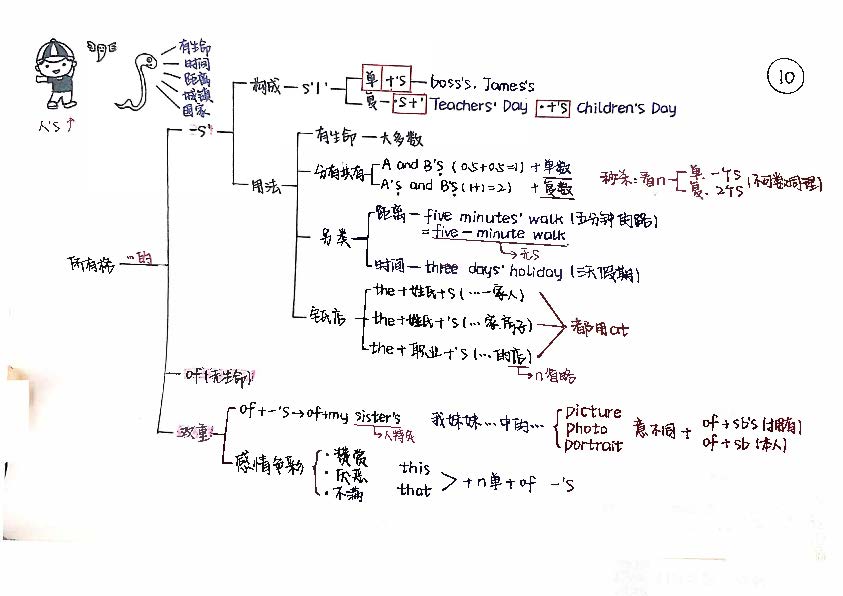 有生命
时间
距离
城镇
国家
人's ↑
10
所有格 …的
-s'
构成 - s'1'
单 +'s - boss's, James's
复 - ·s+' Teachers' Day ·+'s Children's Day
用法
有生命 - 大多数
分有共有
A and B's (0.5+0.5=1) + 单数
A's and B's (1+1=2) + 复数
秒杀: 看n
单. -个s
复. 2个s
(不可数同理)
另类
距离 - five minutes' walk (五分钟的路)
= five-minute walk
→无s
时间 - three days' holiday (三天假期)
宅氏店
the+姓氏+s (…一家人)
the+姓氏+'s (…家房子)
the+职业+'s (…的店)
→n省略
都用at
of (无生命)
双重
of+-'s→of+my sister's
→人特负
我妹妹…中的…
picture
photo
portrait
意不同 + of+sb's (拥有)
of+sb (本人)
感情色彩
·赞赏
·厌恶
·不满
this
that
+n单+of -'s